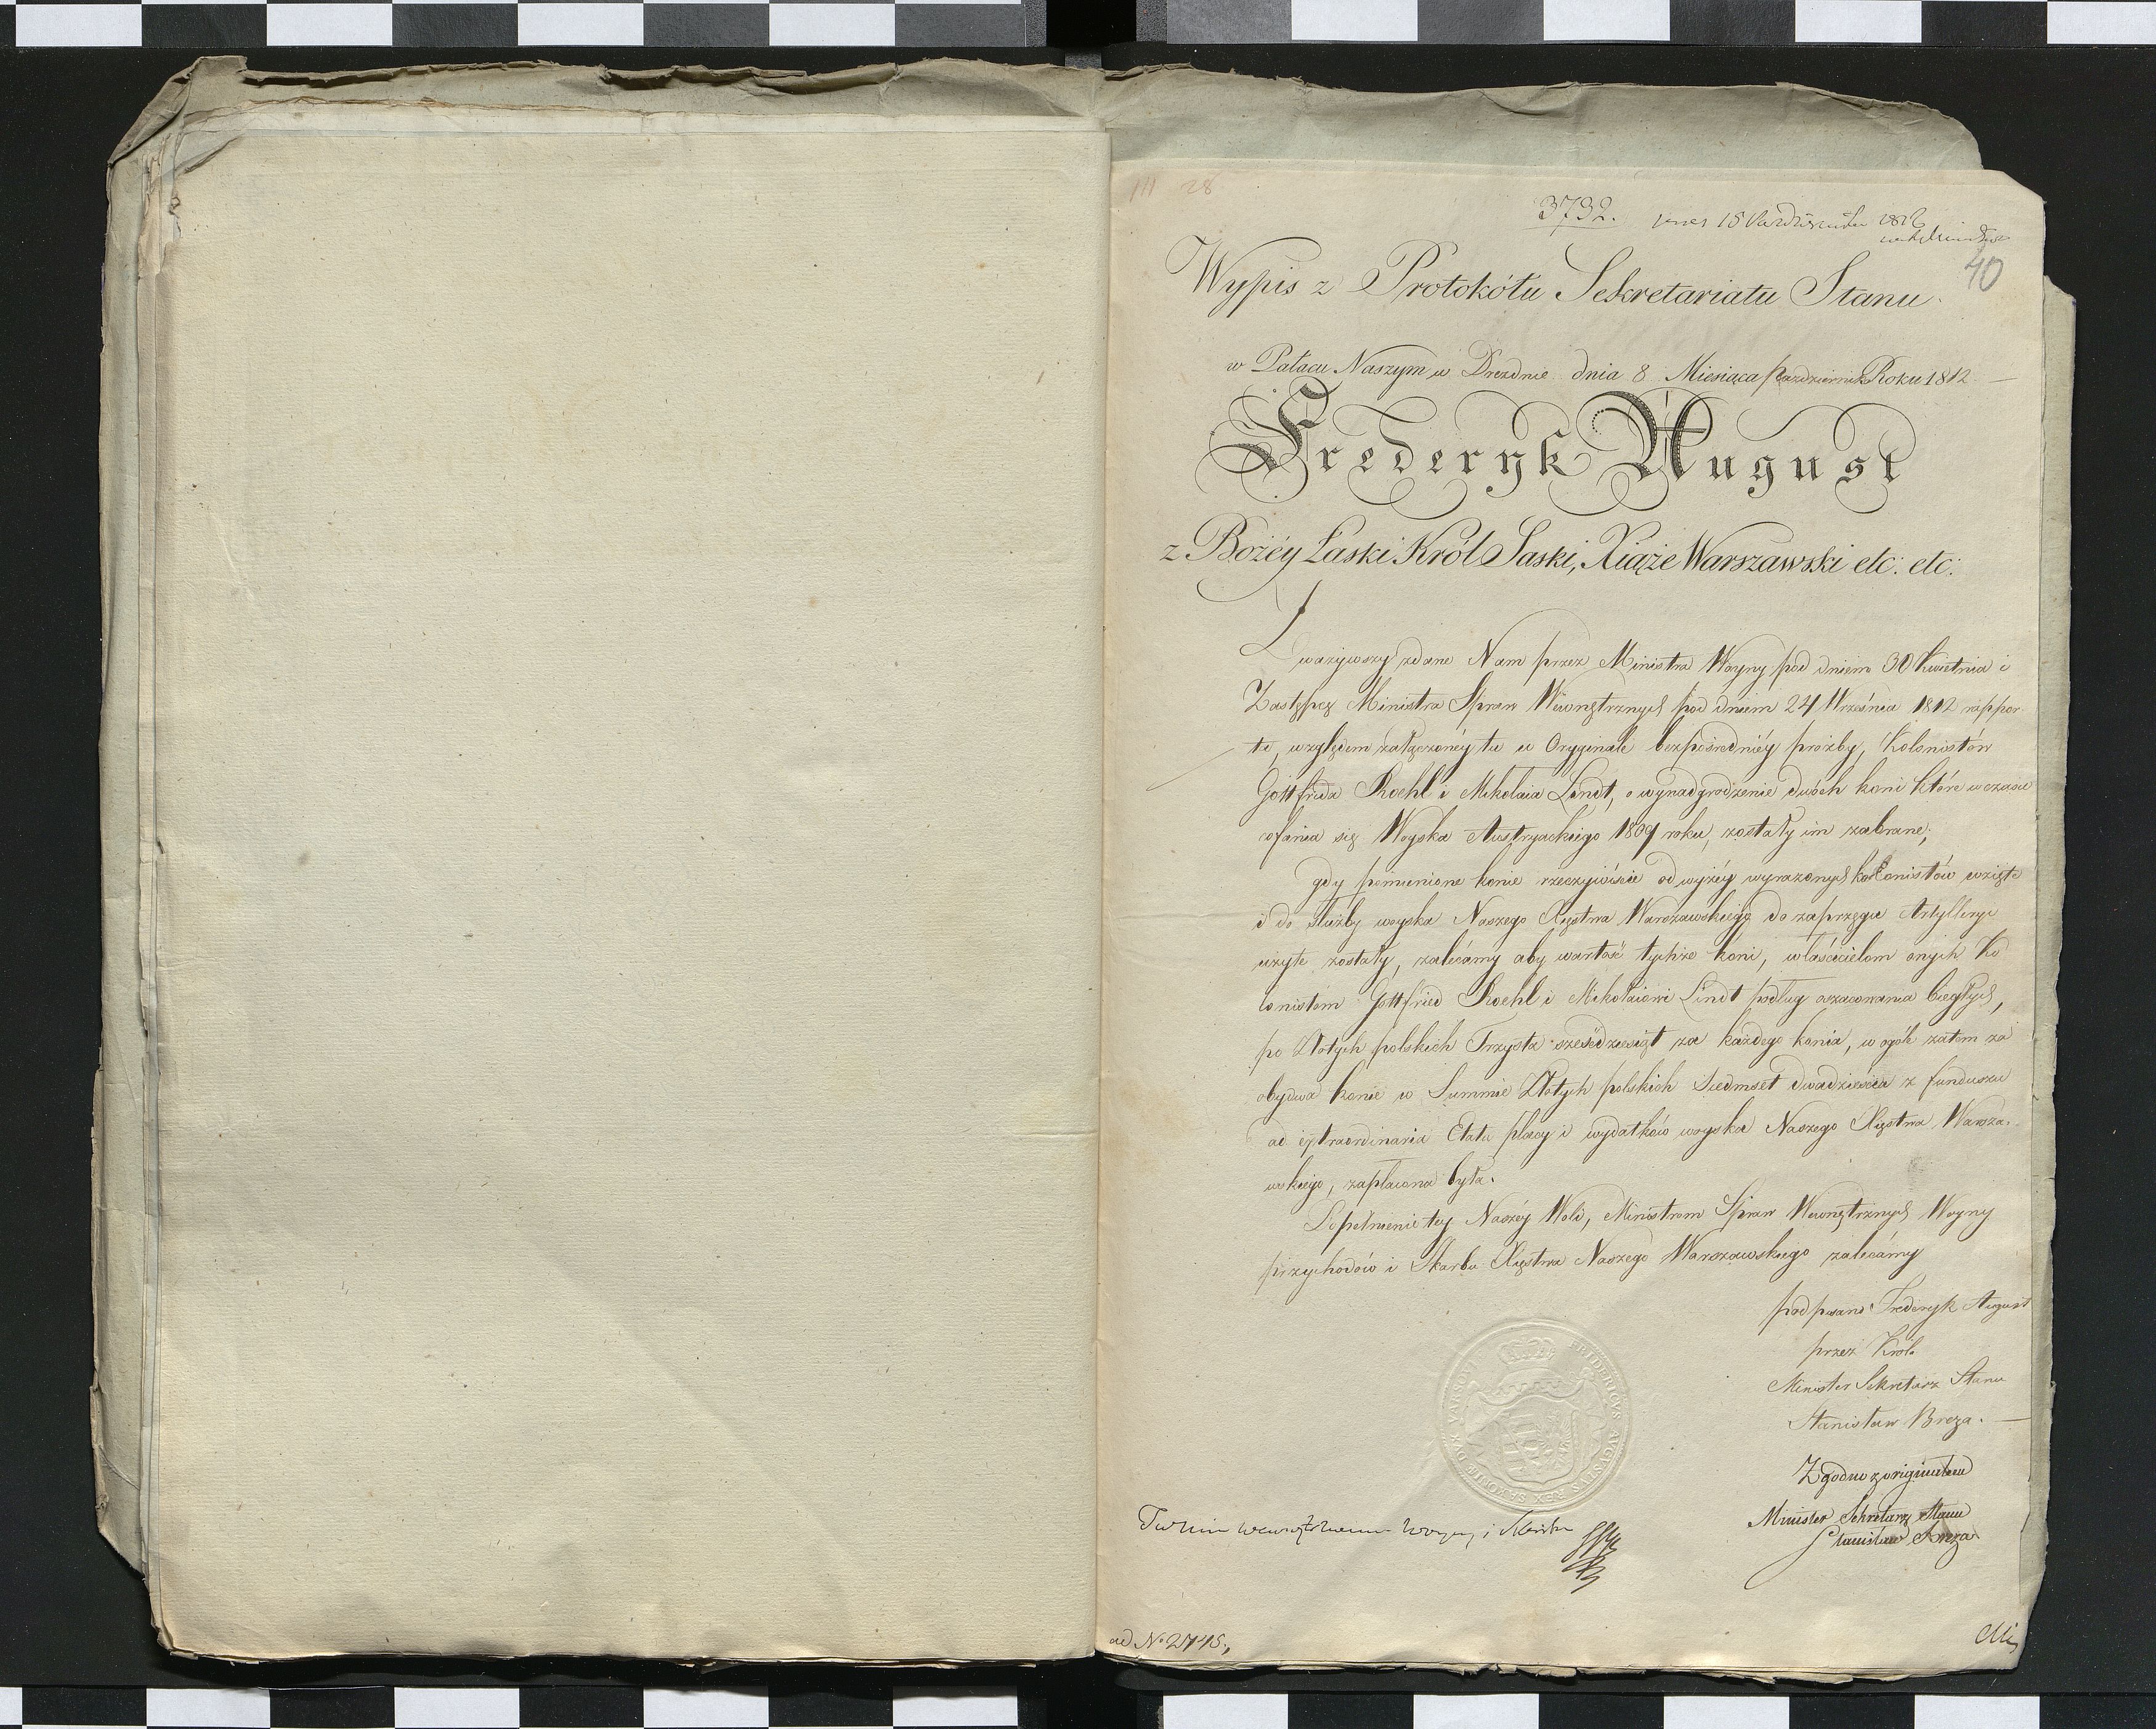 III 28
3732.
40
Wypis z Protokółu Sekretariatu Stanu.
w Pałacu Naszym w Dreznie dnia 8 Miesiąca Październik Roku 1812
Frederyk August
z Bożéy Łaski Król Saski, Xiąże Warszawski etc: etc:
Zważywszy zdane Nam przez Ministra Woyny pod dniem 30 Kwietnia i
Zastępcę Ministra Spraw Wewnętrznych pod dniem 24 Września 1812 rappor-
ta, względem załączonéy tu w Oryginale bezpośredniéy prożby, Kolonistów
Gottfrida Roehl i Mikołaia Lindt, o wynadgrodzenie dwóch koni które w czasie
cofania się Woyska Austryackiego 1809 roku, zostały im zabrane;
gdy pomienione konie rzeczywiście od wyżéy wyrażonych kolonistów wzięte
i do służby woyska Naszego Xięstwa Warszawskiego do zaprzęgu Artylleryi
użyte zostały, zalecámy aby wartość tychże koni, właścicielom onych Ko
lonistom Gottfried Roehl i Mikołaiowi Lindt podług oszacowania biegłych,
po Złotych polskich Trzysta sześćdziesiąt za każdego konia, w ogóle zatem za
obydwa konie w Summie Złotych polskich Siedmset dwadzieścia z funduszu
ad extraordinaria Etatu płacy i wydatków woyska Naszego Xięstwa Warsza-
wskiego, zapłacona była.
Dopełnienie tey Naszéy Woli, Ministrom Spraw Wewnętrznych Woyny
przychodów i Skarbu Xięstwa Naszego Warszawskiego zalecámy
podpisano Frederyk August
przez Król
Minister Sekretarz Stanu
Stanisław Breza.
Zgodno z originałem
Minister Sekretarz Stanu
Stanisław Breza
FRIDERICVS AVGVSTVS REX SAXONIAE DVX VARSOV
Woyny i Skarbu
ad No 2745.